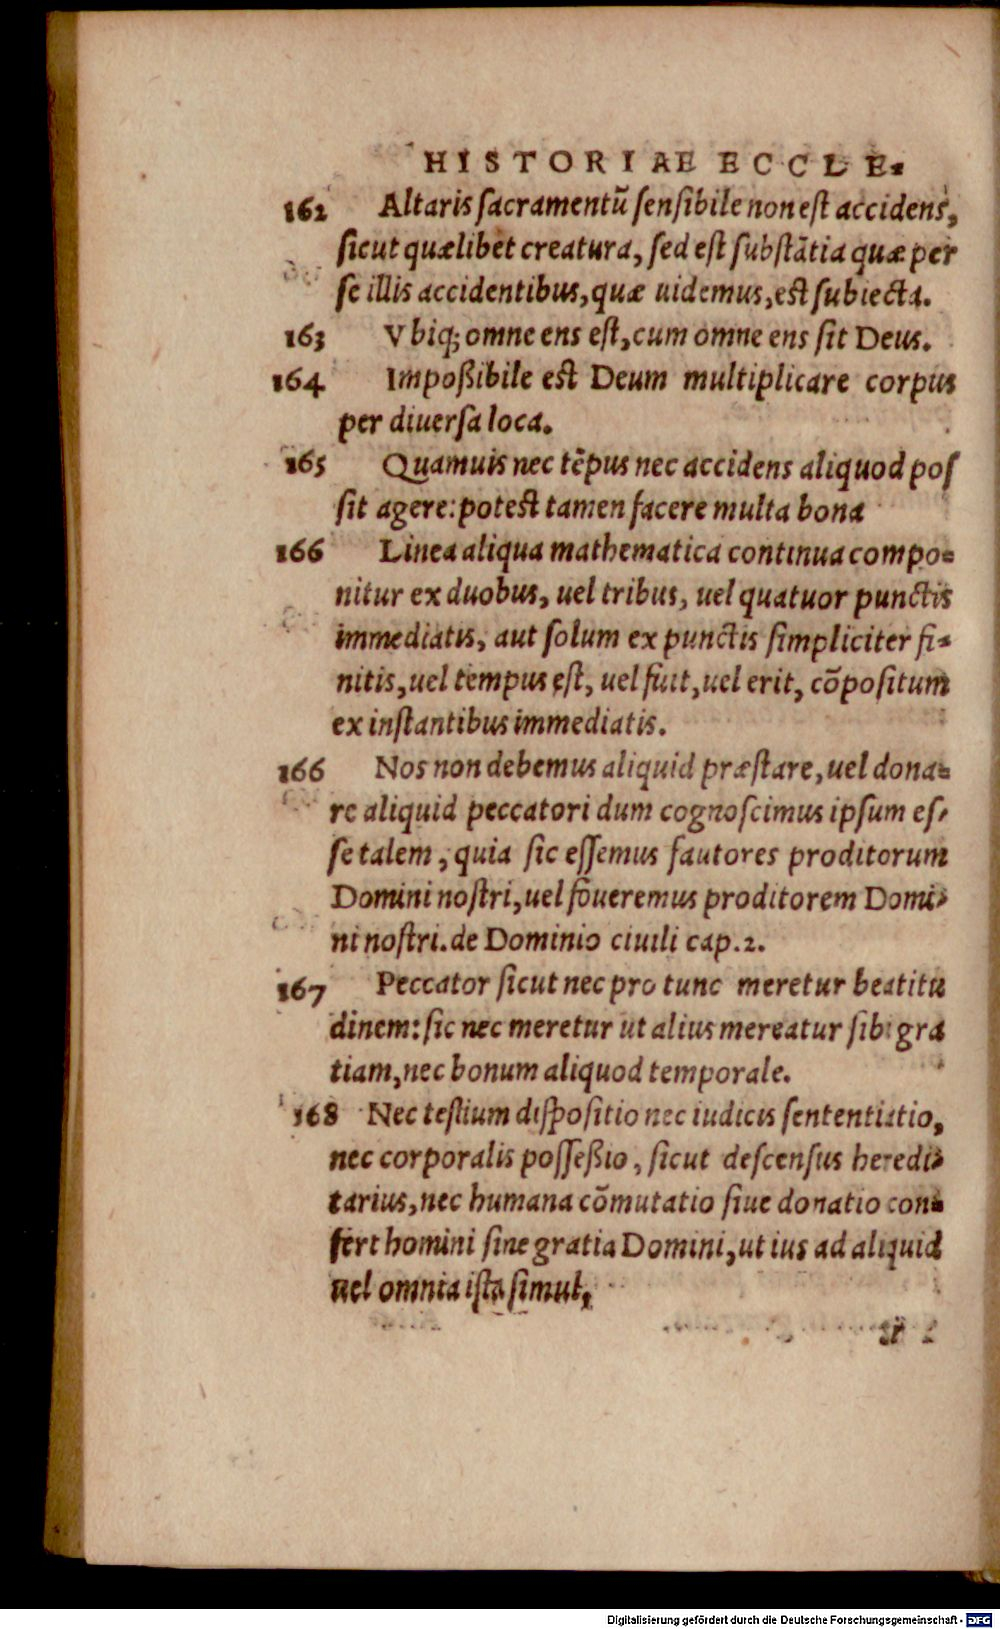 HISTORIAE ECCLE-
162 Altaris ſacramentũ ſenſibile non eſt accidens,
ſicut quælibet creatura, ſed eſt ſubſtãtia quæ per
ſe illis accidentibus, quæ uidemus, eſt ſubiecta.
163 Vbiq; omne ens eſt, cum omne ens ſit Deus.
164 Impoßibile eſt Deum multiplicare corpus
per diuerſa loca.
165 Quamuis nec tẽpus nec accidens aliquod poſ
ſit agere: poteſt tamen facere multa bona
166 Linea aliqua mathematica continua compo-
nitur ex duobus, uel tribus, uel quatuor punctis
immediatis, aut ſolum ex punctis ſimpliciter fi-
nitis, uel tempus eſt, uel fuit, uel erit, cõpoſitum
ex inſtantibus immediatis.
166 Nos non debemus aliquid præſtare, uel dona-
re aliquid peccatori dum cognoſcimus ipſum eſ-
ſe talem, quia ſic eſſemus fautores proditorum
Domini noſtri, uel foueremus proditorem Domi-
ni noſtri. de Dominio ciuili cap. 2.
167 Peccator ſicut nec pro tunc meretur beatitu
dinem: ſic nec meretur ut alius mereatur ſibi gra
tiam, nec bonum aliquod temporale.
168 Nec teſtium diſpoſitio nec iudicis ſententiatio,
nec corporalis poſſeßio, ſicut deſcenſus heredi-
tarius, nec humana cõmutatio ſiue donatio con-
fert homini ſine gratia Domini, ut ius ad aliquid
uel omnia iſta ſimul,
Digitalisierung gefördert durch die Deutsche Forschungsgemeinschaft - DFG